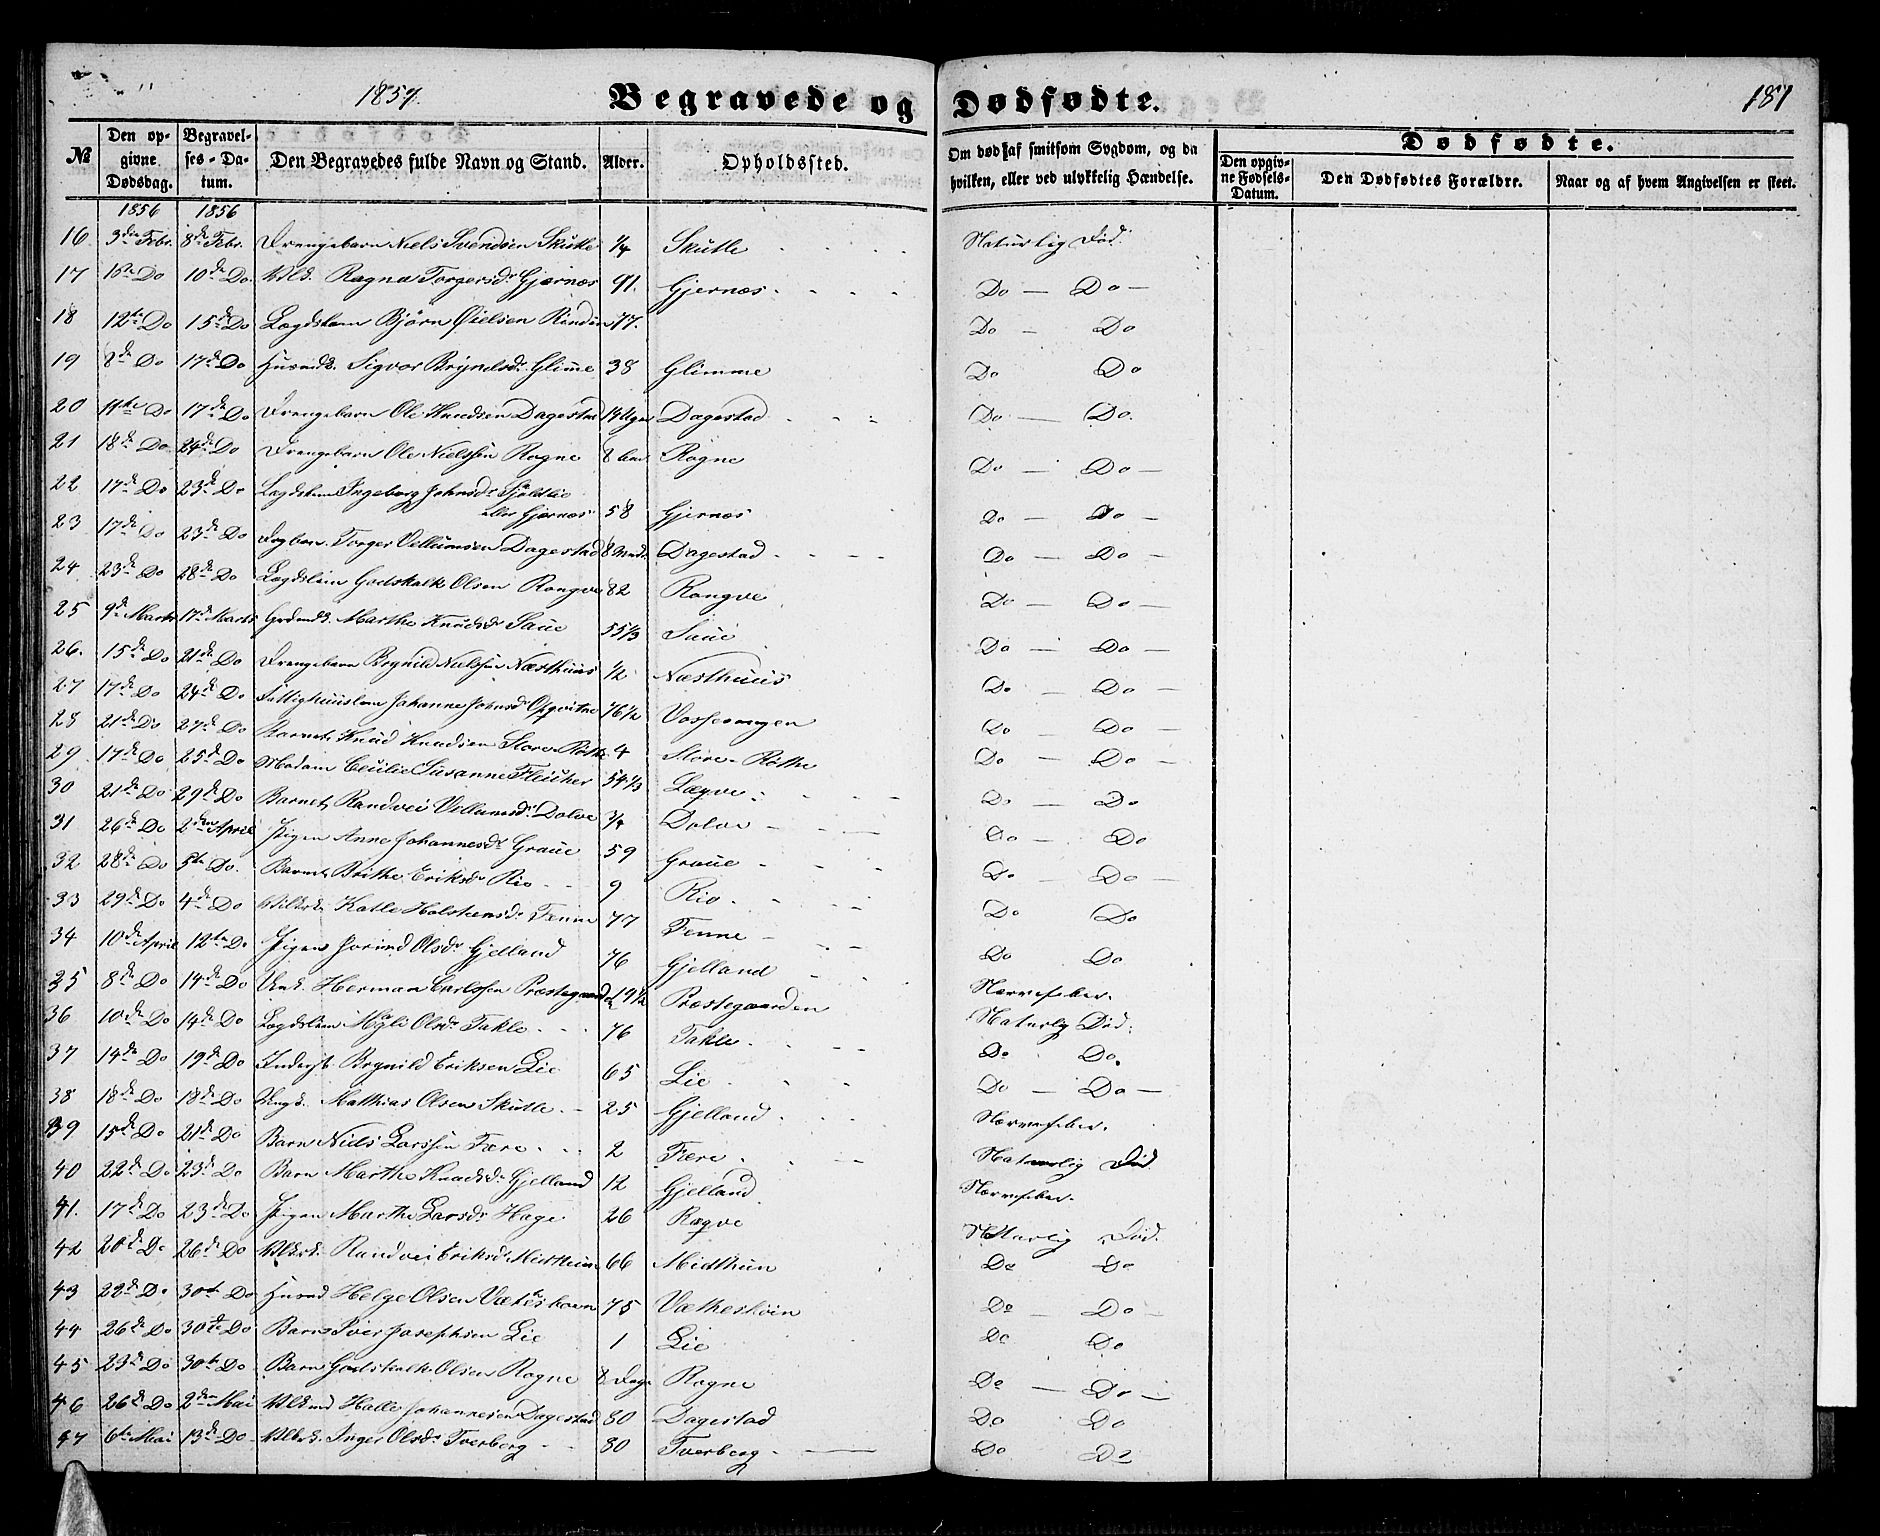 1857. Begravede og Dødfødte. 181
№ Den opgivne Dødsdag. Begravelses-Datum. Den Begravedes fulde Navn og Stand. Alder. Opholdssted. Om død af smitsom Sygdom, og da hvilken, eller ved ulykkelig Hændelse. Dødfødte. Den opgivne Fødsels-Datum. Den Dødfødtes Forældre. Naar og af hvem Angivelsen er skeet.
1856 1856
16 3die Febr. 8de Febr. Drengebarn Niels Svendsen Skutle 1/4 Skutle Naturlig Død.
17 Do 10de Do. Ragna Torgersdr Gjernæs 91. Gjernæs Do — Do —
18 12te Do 15de Do Lægdslem Bjørn Rinden 77. Do — Do
19 8de Do 17de Do Huusmdk. Sigvor Brynilsdr Glimme 38 Glimme Do Do
20 11te Do 17de Do Drengebarn Ole Knudsen Dagestad 14 Uger Dagestad Do — Do.
21 18de Do 24de Do Drengebarn Ole Nielssen Rogne 8 Rogne Do — Do —
22 17de Do 23de Do Lægdslem Ingeborg Johnsdr
eller Gjernæs 58 Gjernæs Do — Do —
23 17de Do 23de Do Torger Villumsen Dagestad 8 Mnd. Dagestad Do — Do —
24 23de Do 28de Do Lægdslem Godskalk Olsen Rongve 82 Rongve Do — Do —
25 9de Marts 17de Marts Grdmdk. Marthe Knudsdr Saue 55 1/3 Saue Do — Do —
26. 15de Do 21de Do Drengebarn Brynild Nielssen Næsthuus 1/2 Næsthuus Do — Do —
27 17de Do 24de Do Fattighuuslem Johanne Johnsdr Opqvitne 76 1/2 Vossevangen Do — Do —
28 21de Do 27de Do Barnet Knud Knudsen Store Røthe 4 Store-Røthe Do — Do —
29 17de Do 25de Do Madam Cecilie Susanne Fleischer 54 1/3 Lægve Do Do
30 21de Do 29de Do Barnet Randvei Villumsdr Dolve 3/4 Dolve Do — Do
31 26de Do 2den April Pigen Anne Johannesdr Graue 59 Graue Do — Do —
32 28de Do 5te Do. Barnet Brithe Eriksdr Rio 9 Rio Do Do
33 29de Do 4de Do Katle Holstensdr Fenne 77 Fenne Do Do
34 10de April 12te Do Pigen Jorind Olsdr Gjelland 76 Gjelland Nærvefeber.
35 8de Do 14de Do Ungk. Herman Carlssen Præstegaard 19 1/2 Præstegaarden Naturlig Død.
36 10de Do 14de Do Lægdslem Olsdr Takle 76 Takle Do Do.
37 14de Do 19de Do Inderst Brynild Eriksen Lie 65 Lie Do — Do —
38 18de Do 18de Do Ungk. Matthias Olsen Skutle 25 Gjelland Nærvefeber.
39 15de Do 21de Do Barn Niels Larssen Fære 2 Fære Naturlig Død.
40 22de Do 23de Do Barn Marthe Knudsdr Gjelland 12 Gjelland Nærvefeber.
41. 17de Do 23de Do Pigen Marthe Larsdr Hage 26 Røqve Naturlig Død.
42 20de Do 26de Do Randvei Eriksdr Midthuun 66 Midthun Do Do
43 22de Do 30te Do Huusmd Helge Olsen 75 Do — Do —
44 26de Do 30te Do Barn Iver Josephsen Lie 1 Lie Do Do
45 23de Do 30te Do Barn Godskalk Olsen Rogne 8 Dage Rogne Do — Do —
46 26de Do 2den Mai Halle Johannesen Dagestad 80 Dagestad Do Do
47 6te Mai 13de Do Inger Olsdr Tverberg 80 Tverberg Do Do